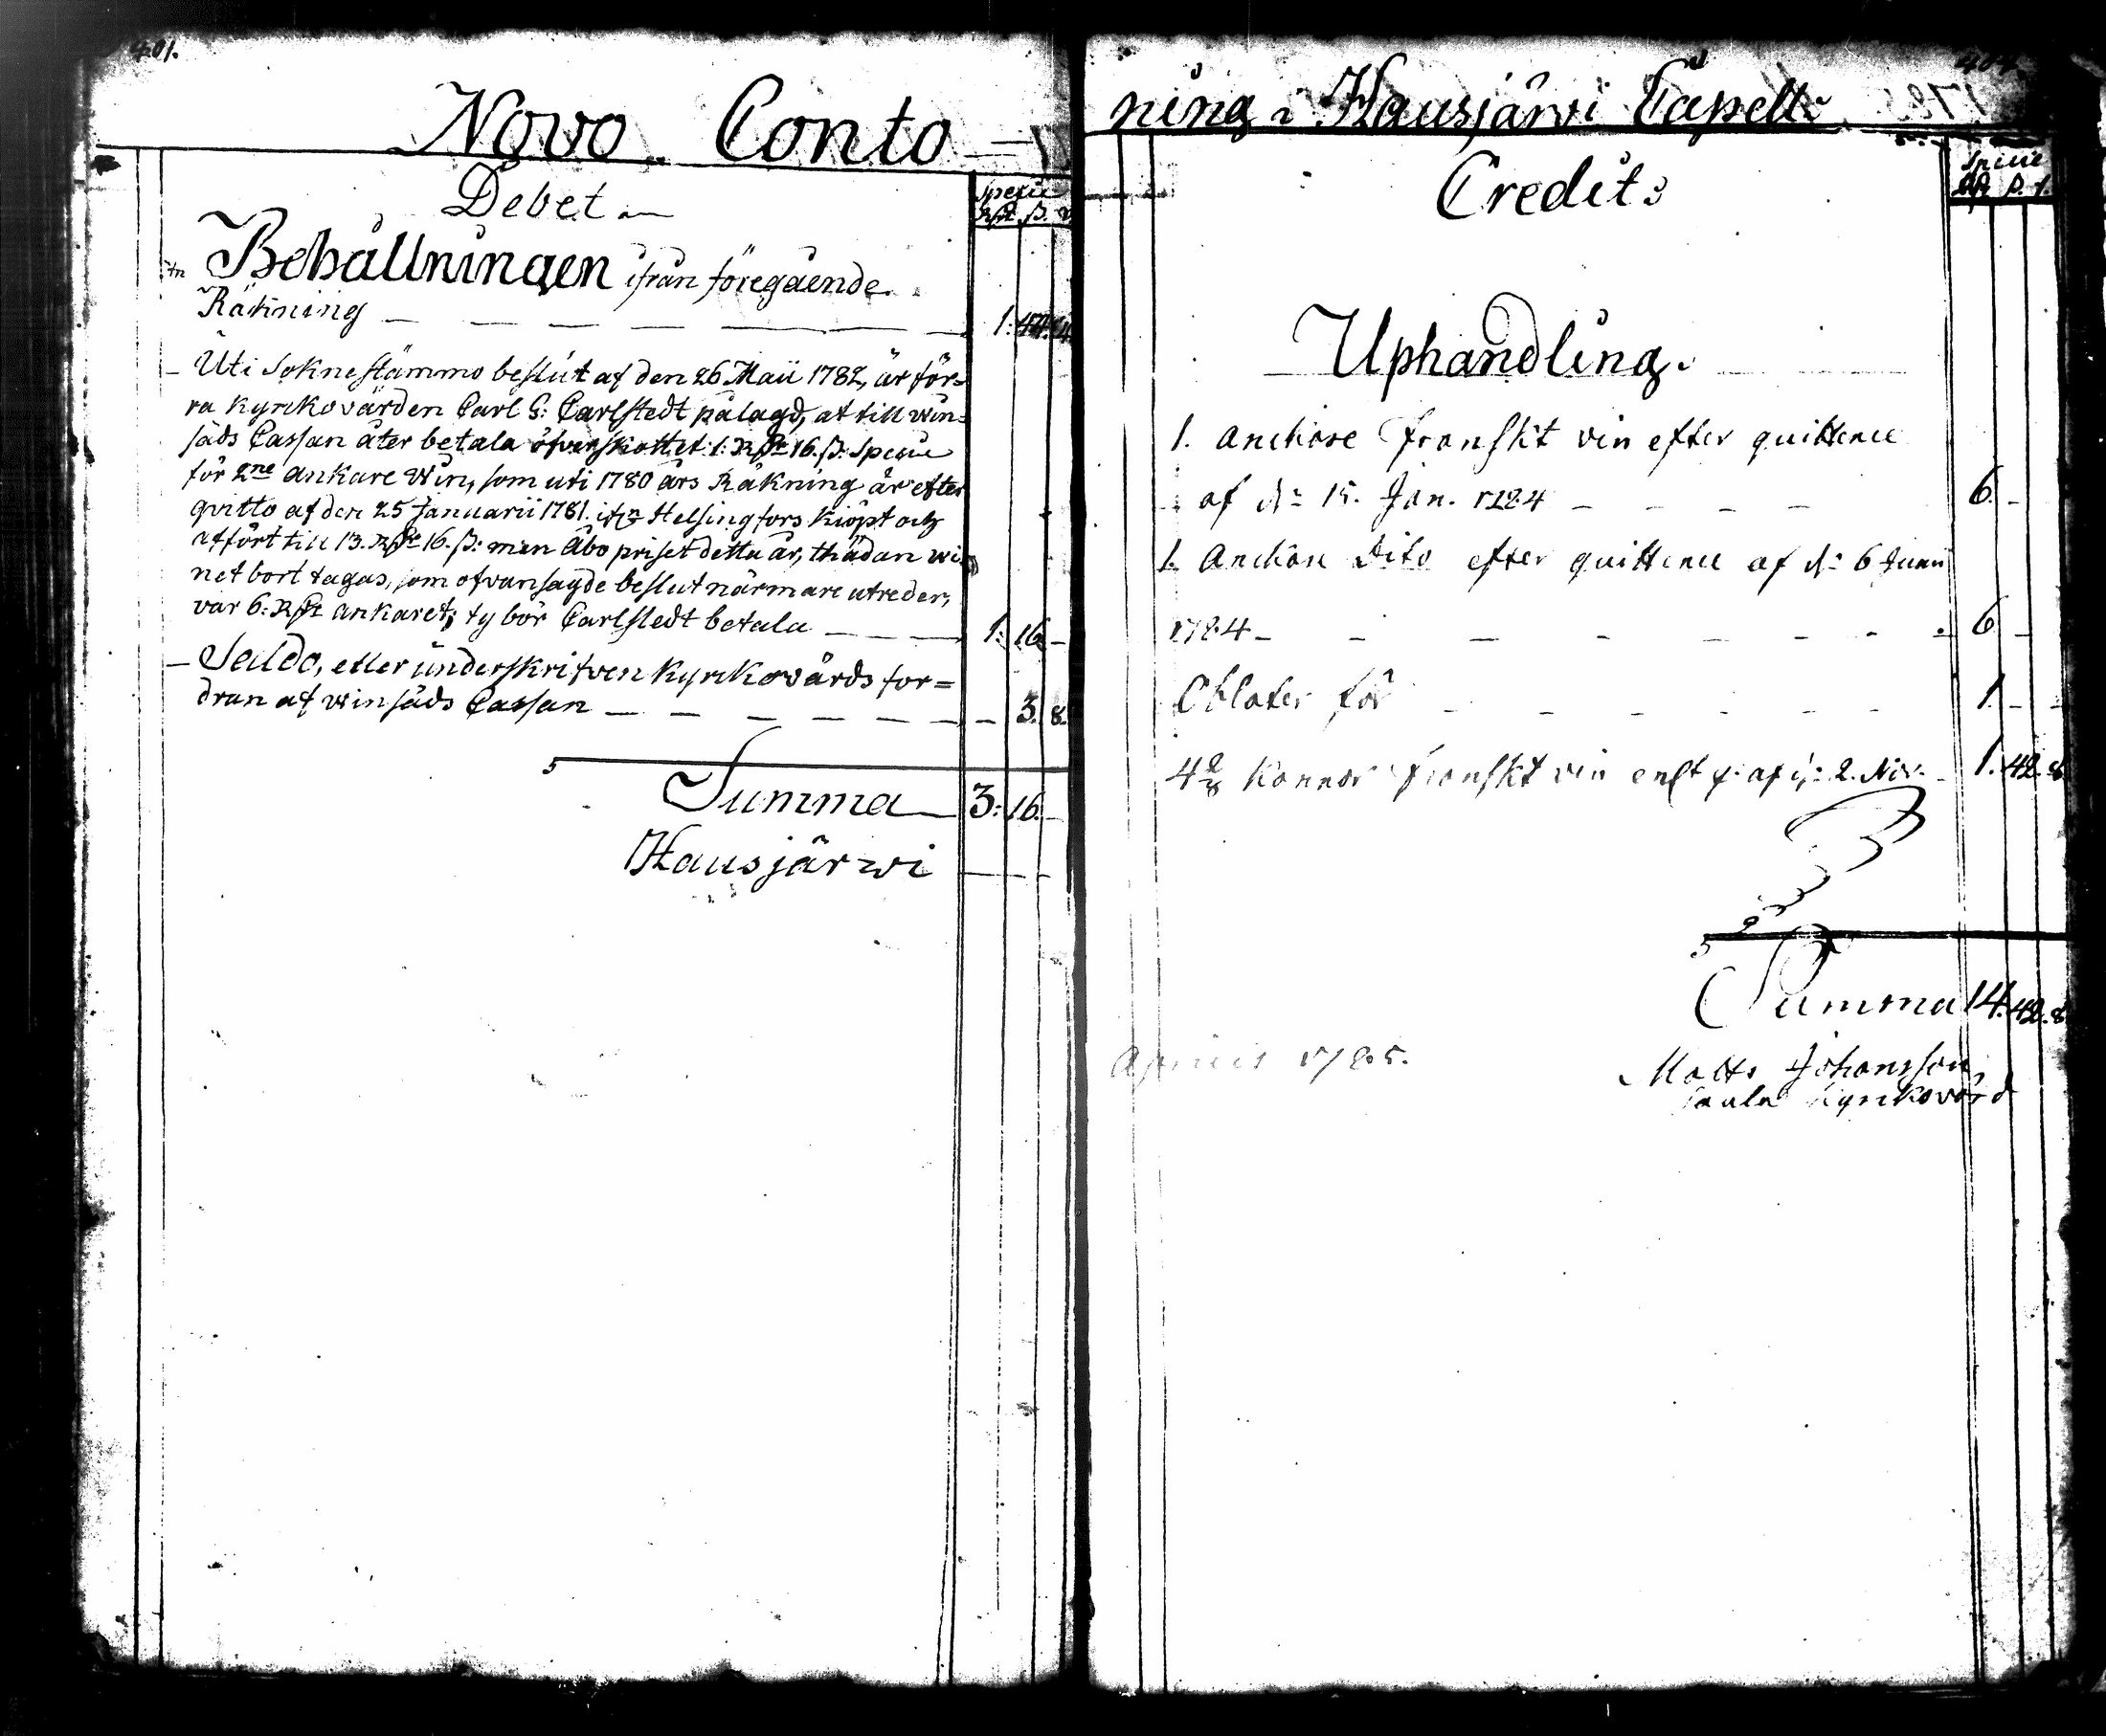 401.
Novo Conto
Debet
Specie
Rdr ß. r
Behållningen ifrån föregående
Räkning — — — — — — 1: 44. 4.
— Uti Soknestämmo beslut af den 26 Maii 1782, är för-
ra kyrckovärden Carl G: Carlstedt pålagd, at till win-
säds Cassan åter betala öfverskottet 1: Rdr 16. ß: Specie
för 2ne ankare win, som uti 1780 års Räkning är efter
qvitto af den 25 Januarii 1781. ifrn Helsingfors kiöpt och
affört till 13. Rdr 16. ß: men Åbo priset detta år, thädan wi-
net bort tagas, som ofvansagde beslut närmare utreder,
var 6: Rdr ankaret; ty bör Carlstedt betala — — — 1: 16. —
— Saldo, eller underskrifven kyrckovärds for=
dran af winsäds Cassan — — — — — — 3. 8.
Summa 3: 16. —
Hausjärwi
ning i Hausjärvi Capell
Credit:
Specie
Rdr ß. r.
Uphandling.
1. anckare franskt vin efter quittence
af dn 15. Jan. 1784 — — — — 6. —
1. Anckare dito efter quittence af dn 6 Junii
1784 — — — — — — — 6 —
Oblater för — — — — — — 1. — —
4 2/8 kannor franskt vin 2. Nov. — 1. 42. 8
Summa 14. 42. 8
1785.
Matts Johansson
kyrckovärd